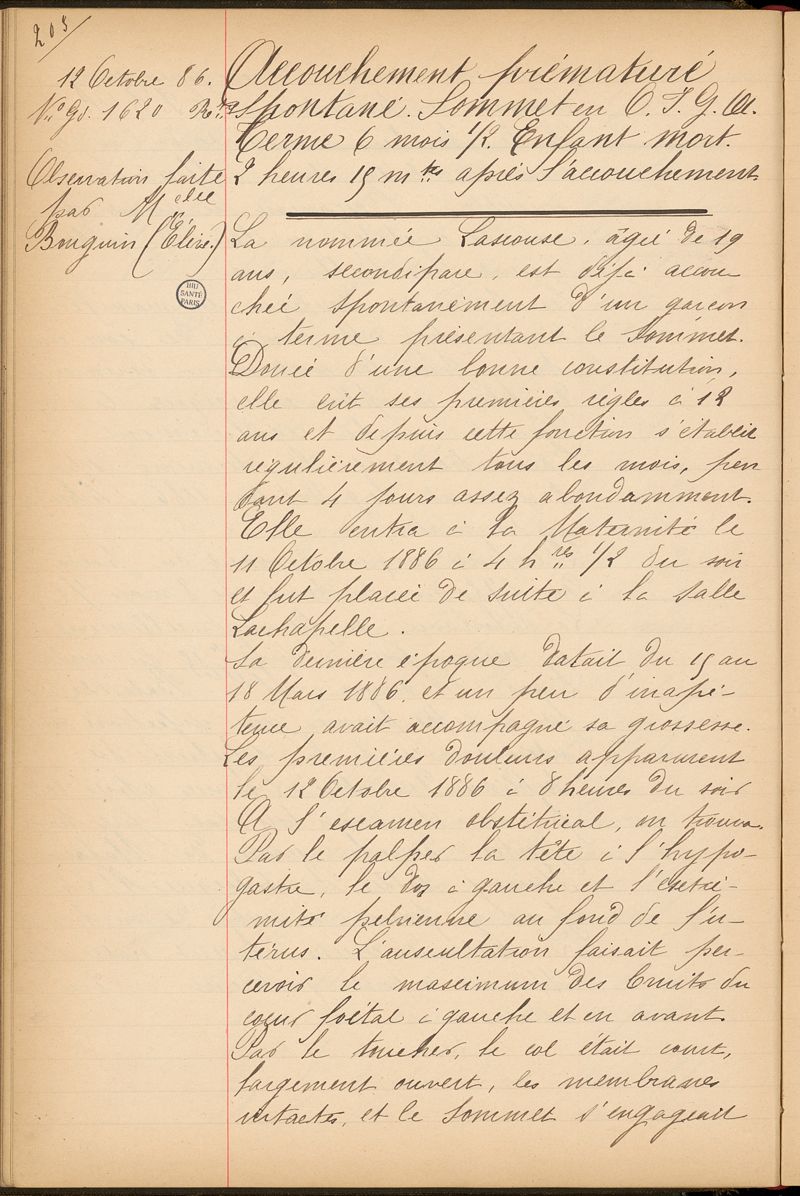 203/
12 Octobre 86.
No Gd. 1620
Observation faite
par Melle
Bouquin (Elève.)
BIU
SANTÉ
PARIS
Accouchement prématuré
spontané. Sommet en O. I. G. A.
Terme 6 mois 1/2. Enfant mort.
2 heures 15 mtes après l'accouchement
La nommée Lascouse, âgée de 19
ans, secondipare, est déjà accou
chée spontanément d'un garçon
à terme présentant le sommet.
Douée d'une bonne constitution,
elle eût ses premières règles à 12
ans et depuis cette fonction s'établit
régulièrement tous les mois, pen
dant 4 jours assez abondamment.
Elle entra à la Maternité le
11 Octobre 1886 à 4 hres 1/2 du soir
et fut placée de suite à la salle
Lachapelle.
Sa dernière époque datait du 15 au
18 Mars 1886, et un peu d'inapé-
tence avait accompagné sa grossesse.
Les premières douleurs apparurent
le 12 Octobre 1886 à 8 heures du soir
A l'examen obstétrical, on trouva.
Par le palper la tête à l'hypo-
gastre, le dos à gauche et l'extré-
mité pelvienne au fond de l'u-
térus. L'auscultation faisait per-
cevoir le maximum des bruits du
cœur fœtal à gauche et en avant.
Par le toucher, le col était court,
largement ouvert, les membranes
intactes, et le sommet s'engageait